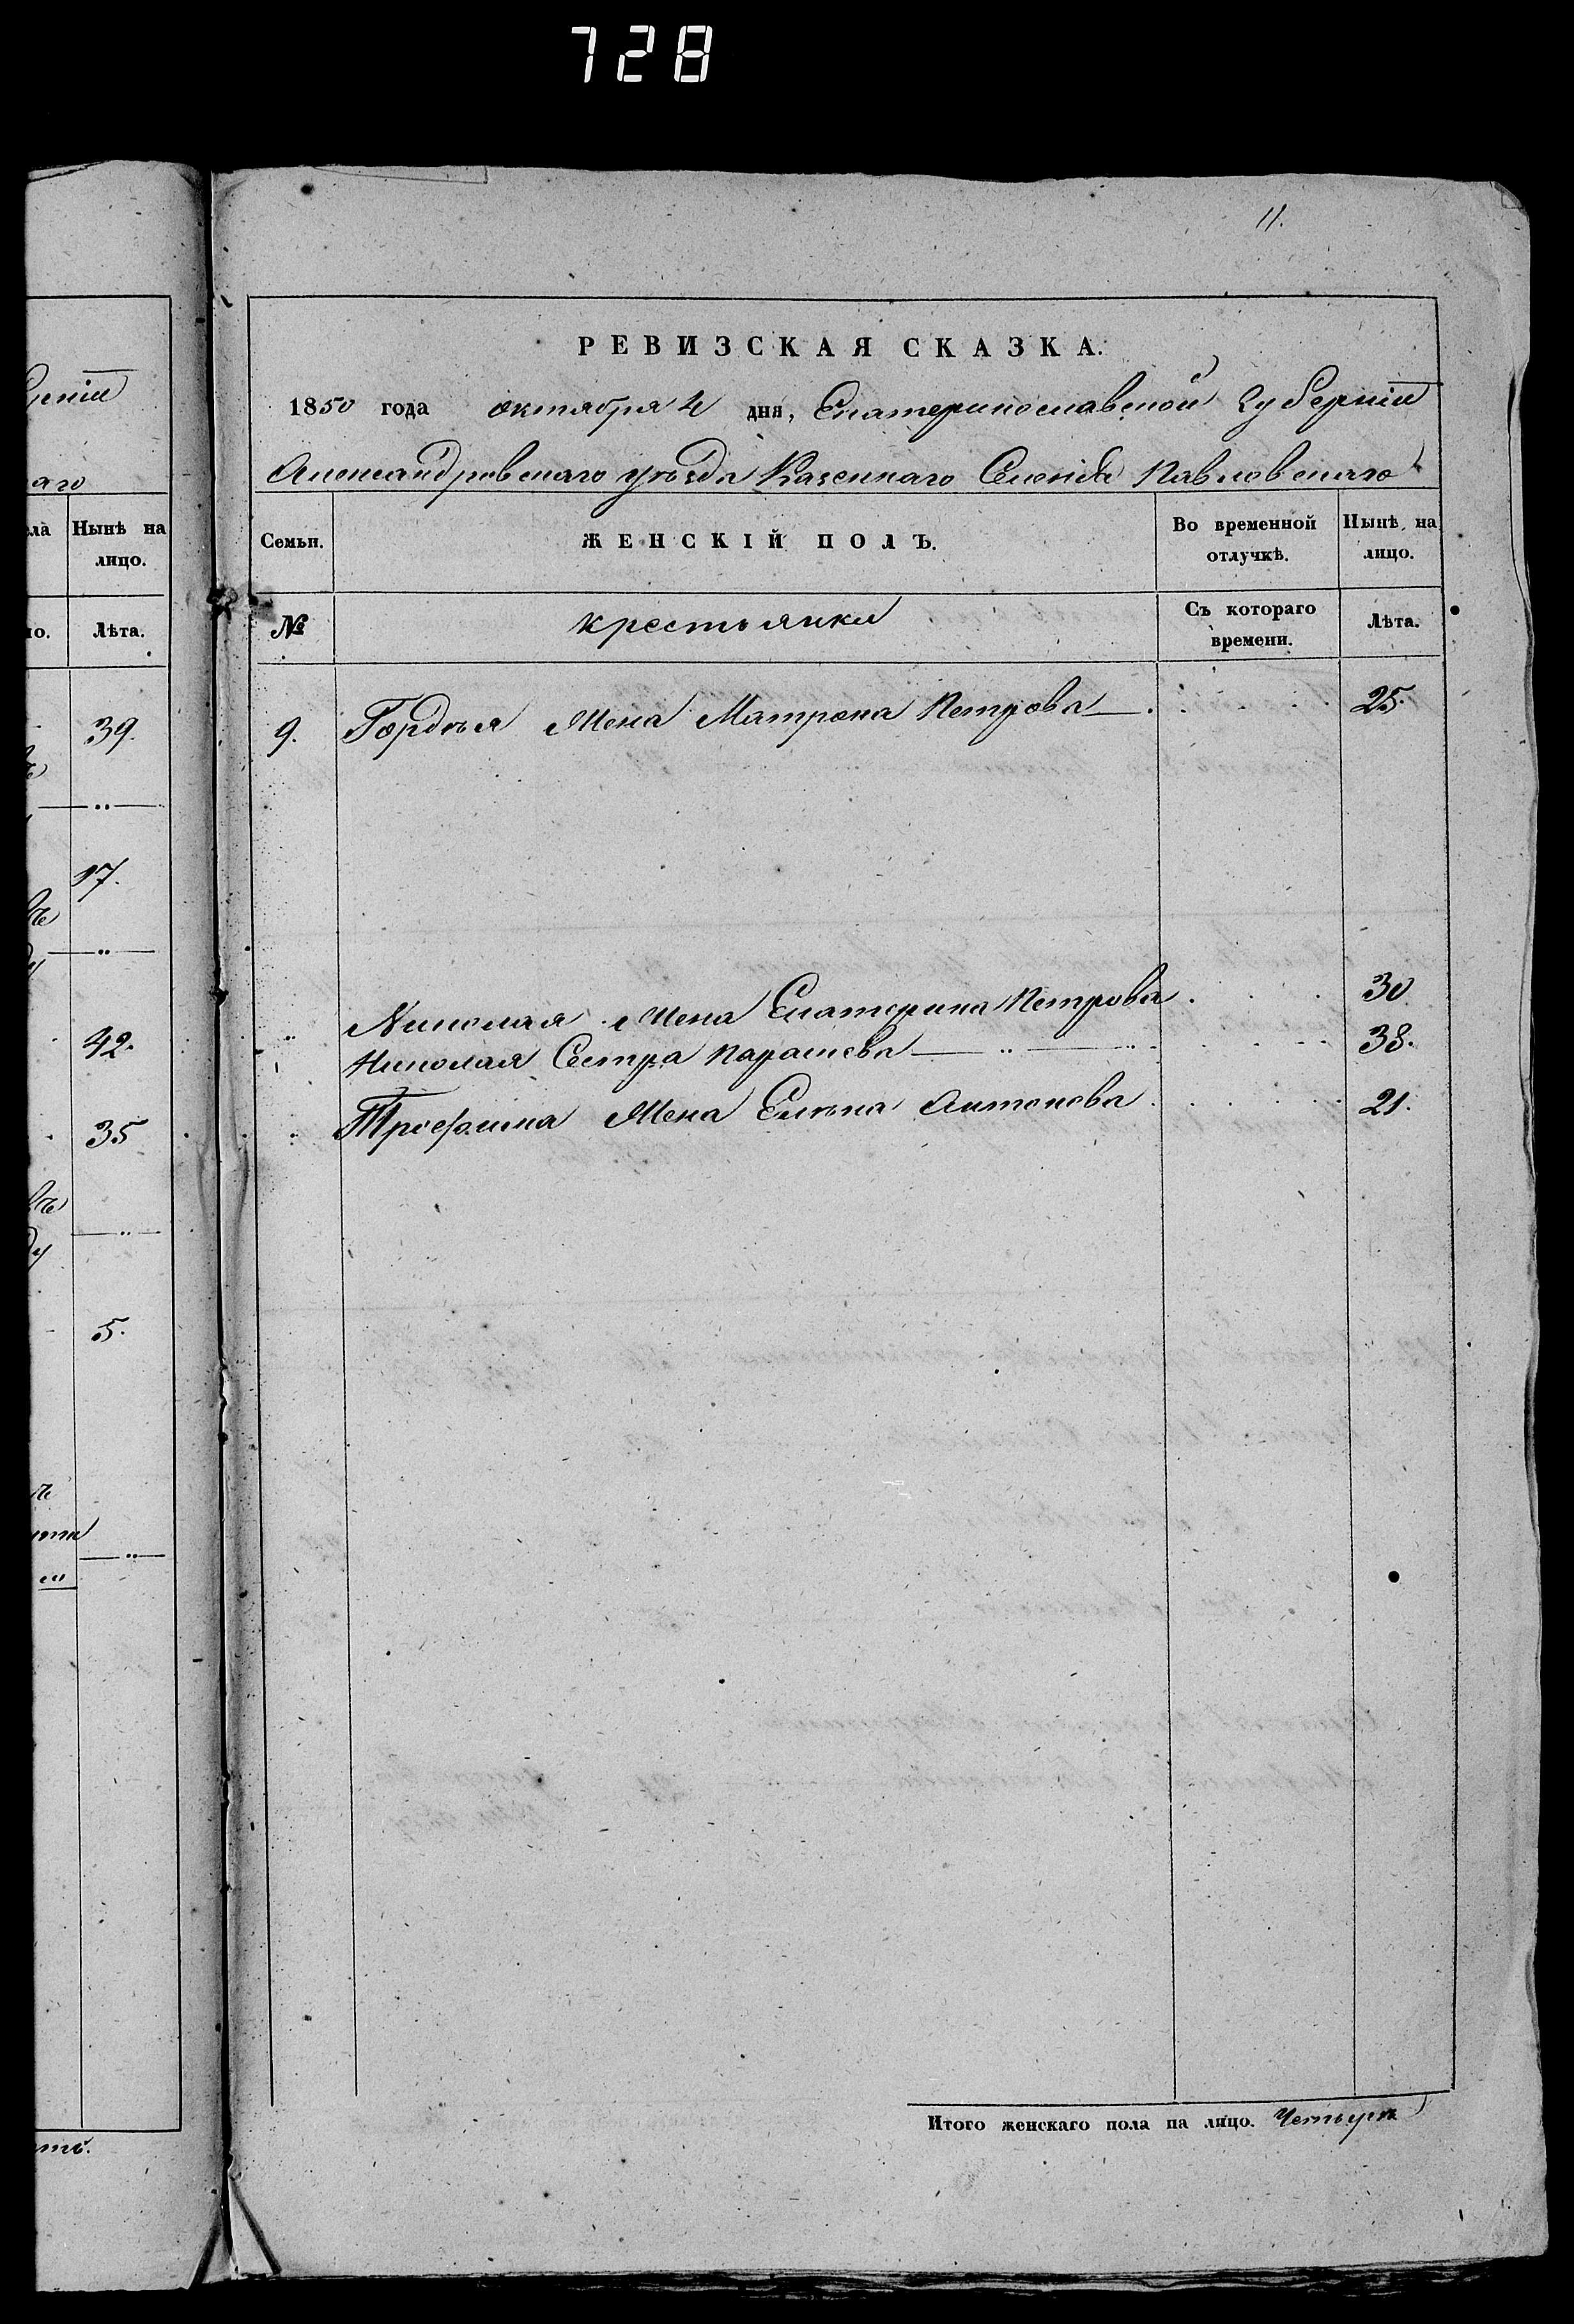 728
11.
РЕВИЗСКАЯ СКАЗКА.
1850 года октября 4 дня, Екатеринославской Губерніи
Александровскаго уѣзда Казеннаго Селенія Павловскаго
аго
ла Нынѣ на лицо.
Лѣта.
39.
17.
42.
35
5.
Семьи. ЖЕНСКІЙ ПОЛЪ. Во временной отлучкѣ. Нынѣ на лицо.
№ крестьянки Съ котораго времени. Лѣта.
9. Гордѣя Жена Матрена Петрова 25.
Николая Жена Екатерина Петрова 30
Николая Сестра 38.
Трофима Жена Елена Антонова 21.
Итого женскаго пола на лицо. Четыре